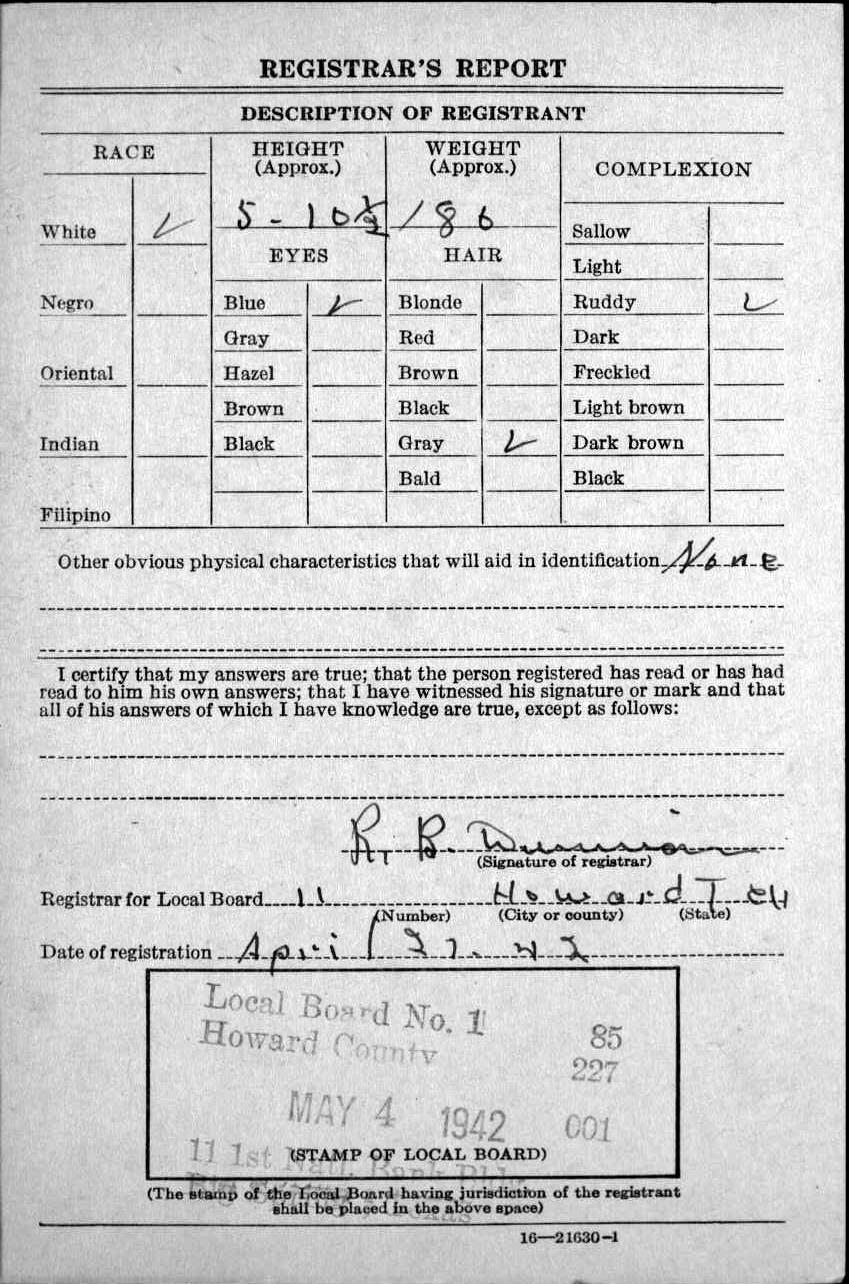 REGISTRAR'S REPORT
DESCRIPTION OF REGISTRANT
RACE
HEIGHT
(Approx.)
WEIGHT
(Approx.)
COMPLEXION
5 - 10 ½
186
White ✓
EYES
HAIR
Sallow
Light
Negro
Blue ✓
Blonde
Ruddy ✓
Gray
Red
Dark
Oriental
Hazel
Brown
Freckled
Brown
Black
Light brown
Indian
Black
Gray ✓
Dark brown
Bald
Black
Filipino
Other obvious physical characteristics that will aid in identification None
I certify that my answers are true; that the person registered has read or has had
read to him his own answers; that I have witnessed his signature or mark and that
all of his answers of which I have knowledge are true, except as follows:
R. B.
(Signature of registrar)
Registrar for Local Board 11 Howard
(Number) (City or county) (State)
Date of registration April 27. 42
Local Board No. 1
Howard County
85
227
MAY 4 1942 001
11 1st Natl. Bank Bldg
(STAMP OF LOCAL BOARD)
Texas
(The stamp of the Local Board having jurisdiction of the registrant
shall be placed in the above space)
16—21630-1